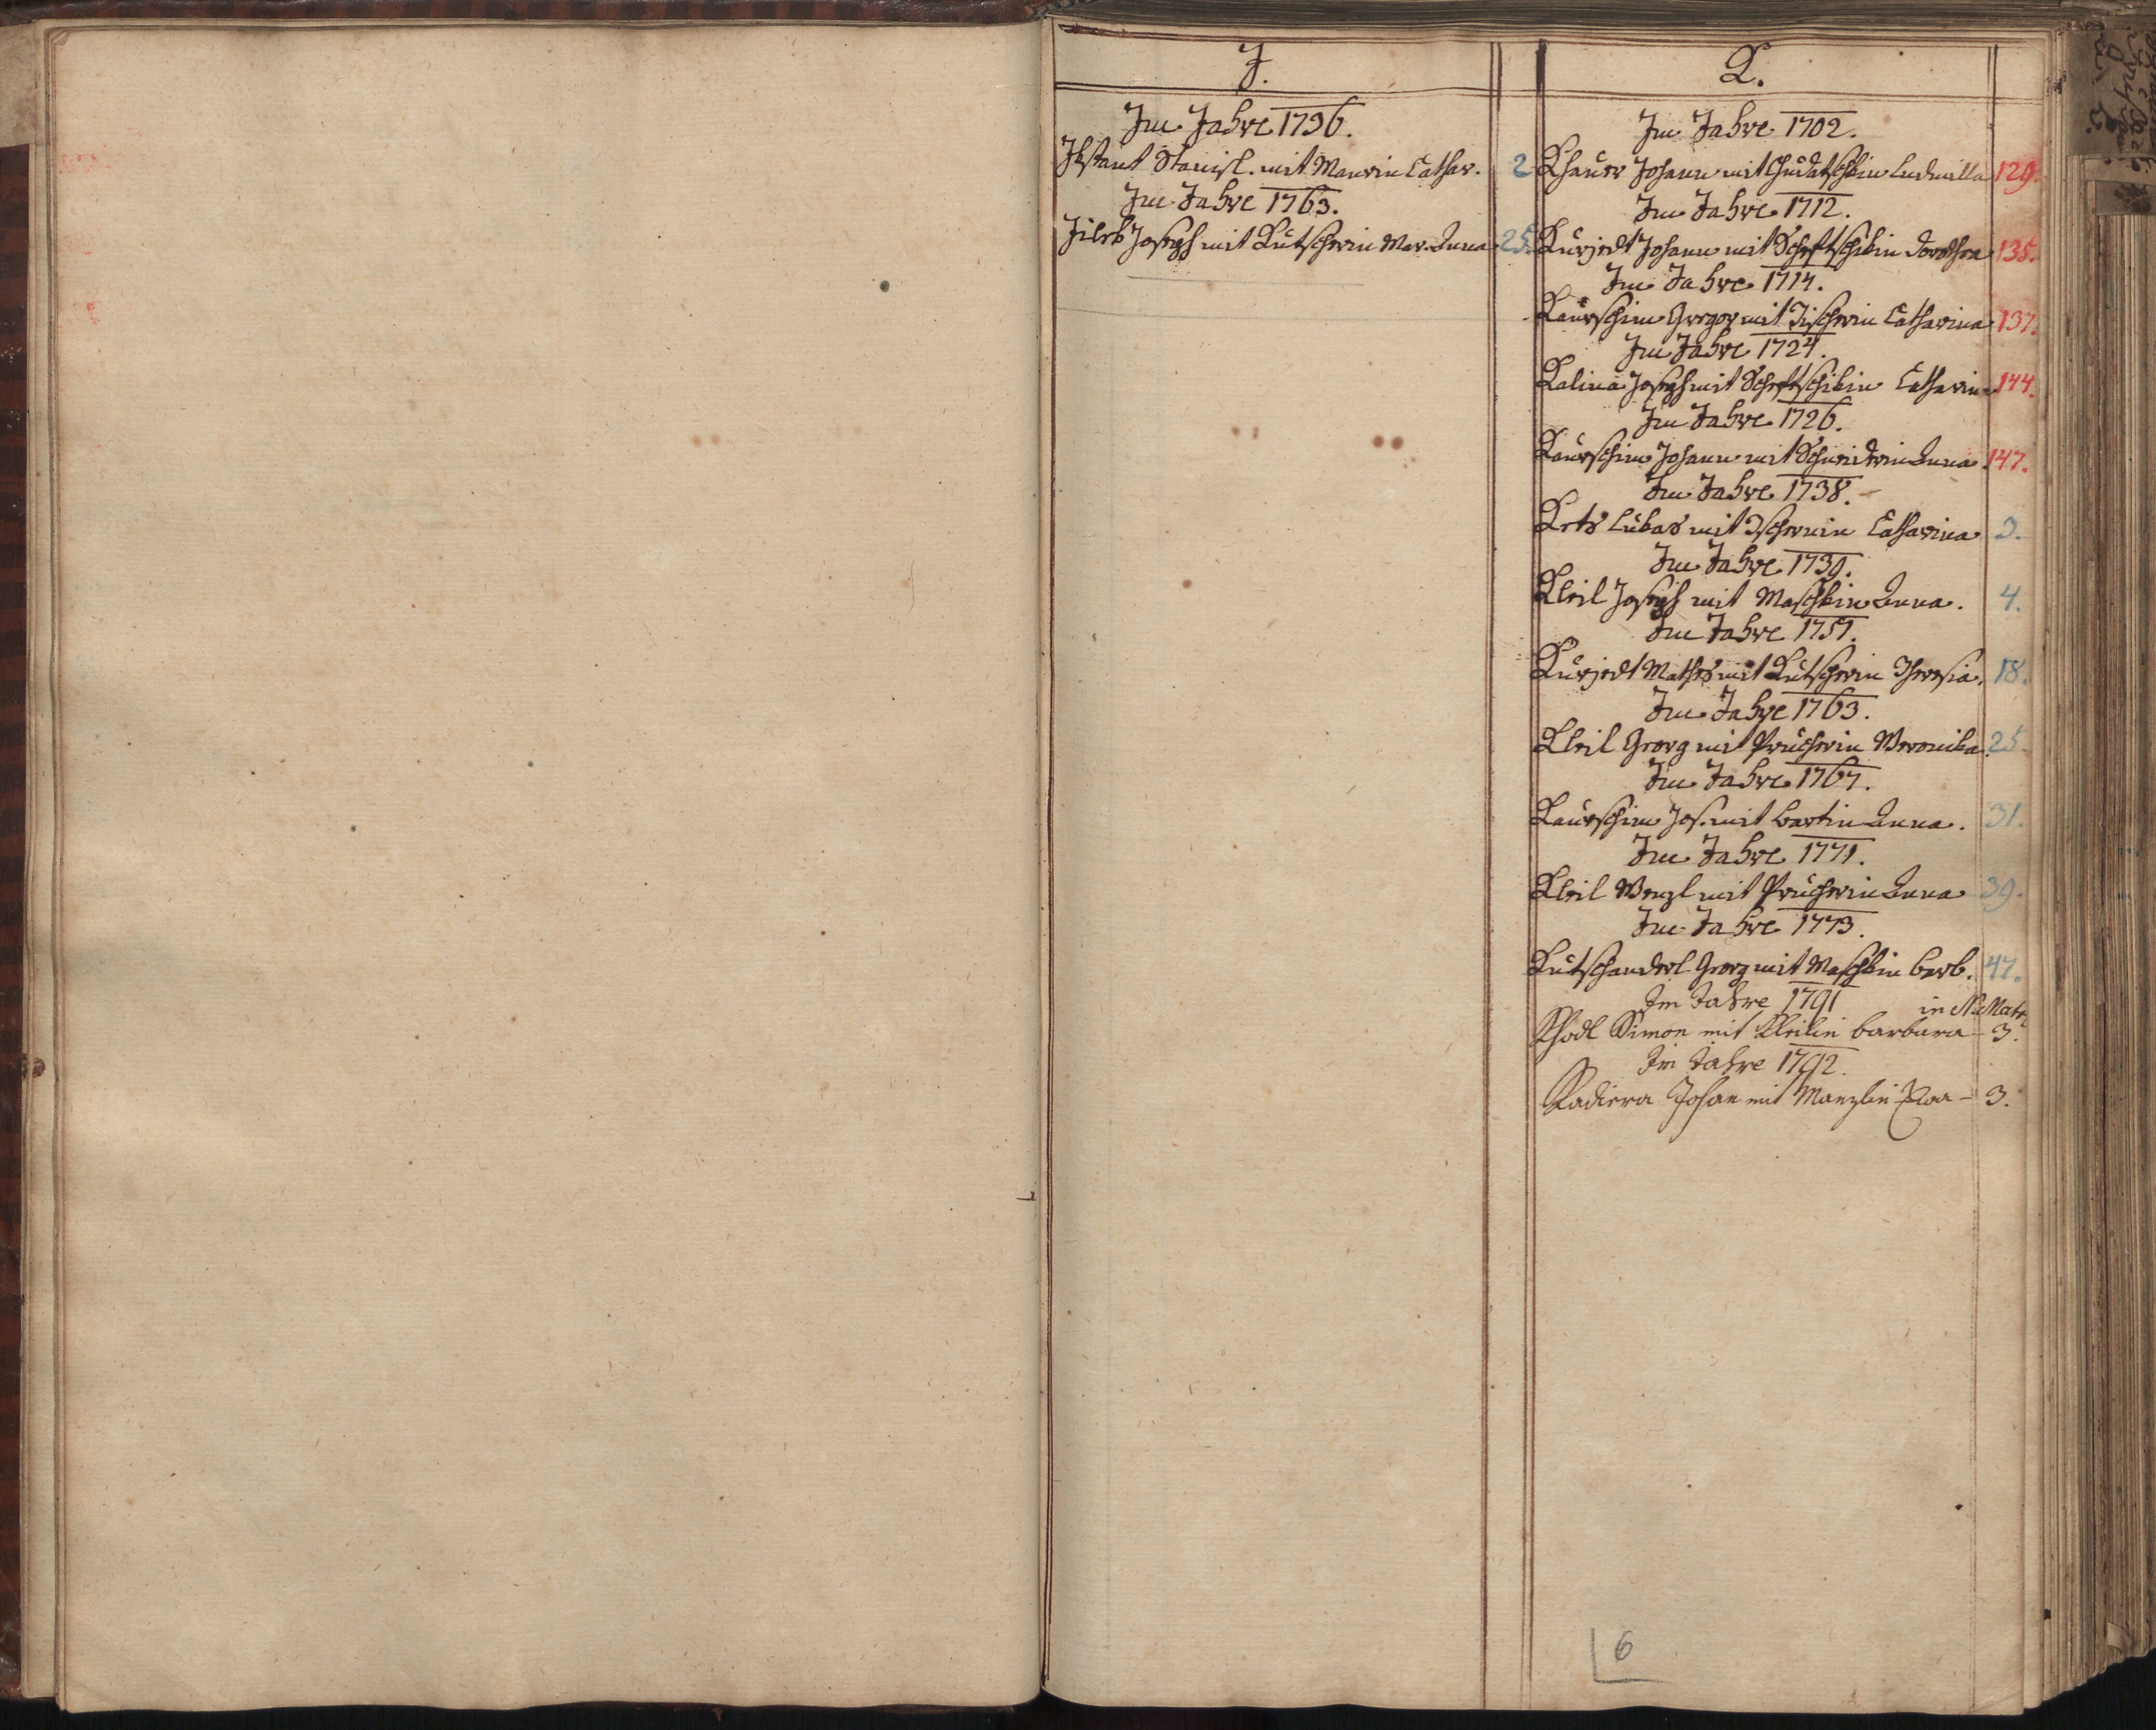 J.
Im Jahre 1736.
Jkstant Stanisl. mit Maurin Cathar. 2
Im Jahre 1763.
Jileb Joseph mit Kutscherin Mar. Anna 25.
K.
Im Jahre 1702.
Khauer Johann mit Chudatschkin Ludmilla 129.
Im Jahre 1712.
Kurzedt Johann mit Scheftschikin Dorothea 135.
Im Jahre 1714.
Kaurschim Gregor mit Tischerin Catharina 137.
Im Jahre 1724.
Kalina Joseph mit Scheftschikin Catharina 144.
Im Jahre 1726.
Kaurschim Johann mit Schneidrin Anna 147.
Im Jahre 1738.
Krts Lukas mit Catharina 3.
Im Jahre 1739.
Kleil Joseph mit Maschkin Anna. 4.
Im Jahre 1751.
Kurzedt Mathes mit Kutscherin Theresia. 18.
Im Jahre 1763.
Kleil Georg mit Prucherin Weronika 25.
Im Jahre 1767.
Kaurschim Jos. mit Bartin Anna. 31.
Im Jahre 1771.
Kleil Wenzl mit Prucherin Anna 39.
Im Jahre 1773.
Kutschanderl Georg mit Maschkin Barb. 47.
Im Jahre 1791 in N. Matr.
Khödl Simon mit Kleilin Barbara – 3.
Im Jahre 1792.
Kadiera Johan mit Manzlin – 3.
6